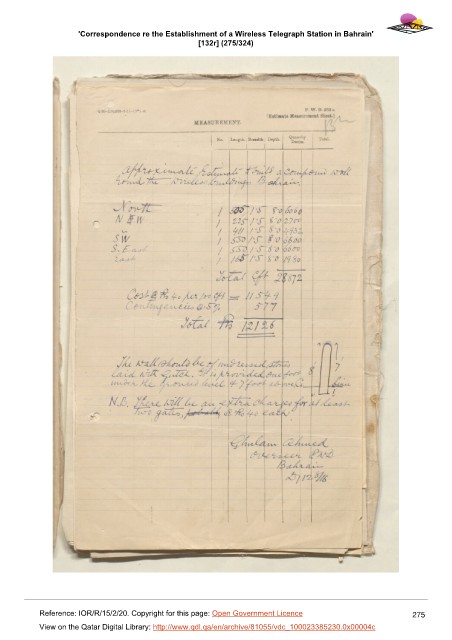 'Correspondence re the Establishment of a Wireless Telegraph Station in Bahrain'
[132r] (275/324)
MEASUREMENT.
[Estimate Measurement Sheet.]
No. Length. Breadth. Depth. Quantity
Approximate Estimate to build a compound wall
round the wireless buildings Bahrain
North 1 500 1·5 8·0 6000
N & W 1 225 1·5 8·0 2700
1 411 1·5 8·0 4932
S W 1 550 1·5 8·0 6600
S. East 1 550 1·5 8·0 6600
East 1 165 1·5 8·0 1980
Total Cft 28872
Cost @ Rs 40 per 100 cft = 11549
Contingencies @ 5% 577
Total Rs 12126
The wall should be of undressed stone
laid with Jutch. To be provided one foot
under the ground level & 7 foot
8 7
N.B. There will be an extra charges for at least
two gates, @ Rs 40 each
Ghulam Ahmed
Overseer P.W.D.
Bahrain
Reference: IOR/R/15/2/20. Copyright for this page: Open Government Licence
275
View on the Qatar Digital Library: http://www.qdl.qa/en/archive/81055/vdc_100023385230.0x00004c